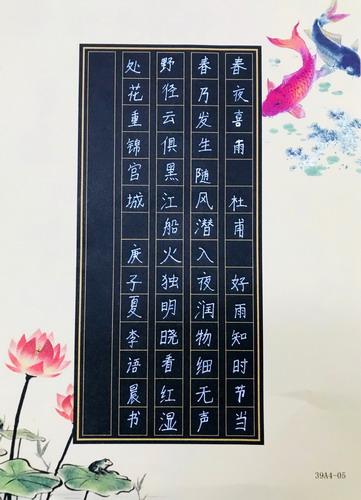 春夜喜雨 杜甫 好雨知时节当
春乃发生随风潜入夜润物细无声
野径云俱黑江船火独明晓看红湿
处花重锦官城 庚子夏李语晨书
39A4-05